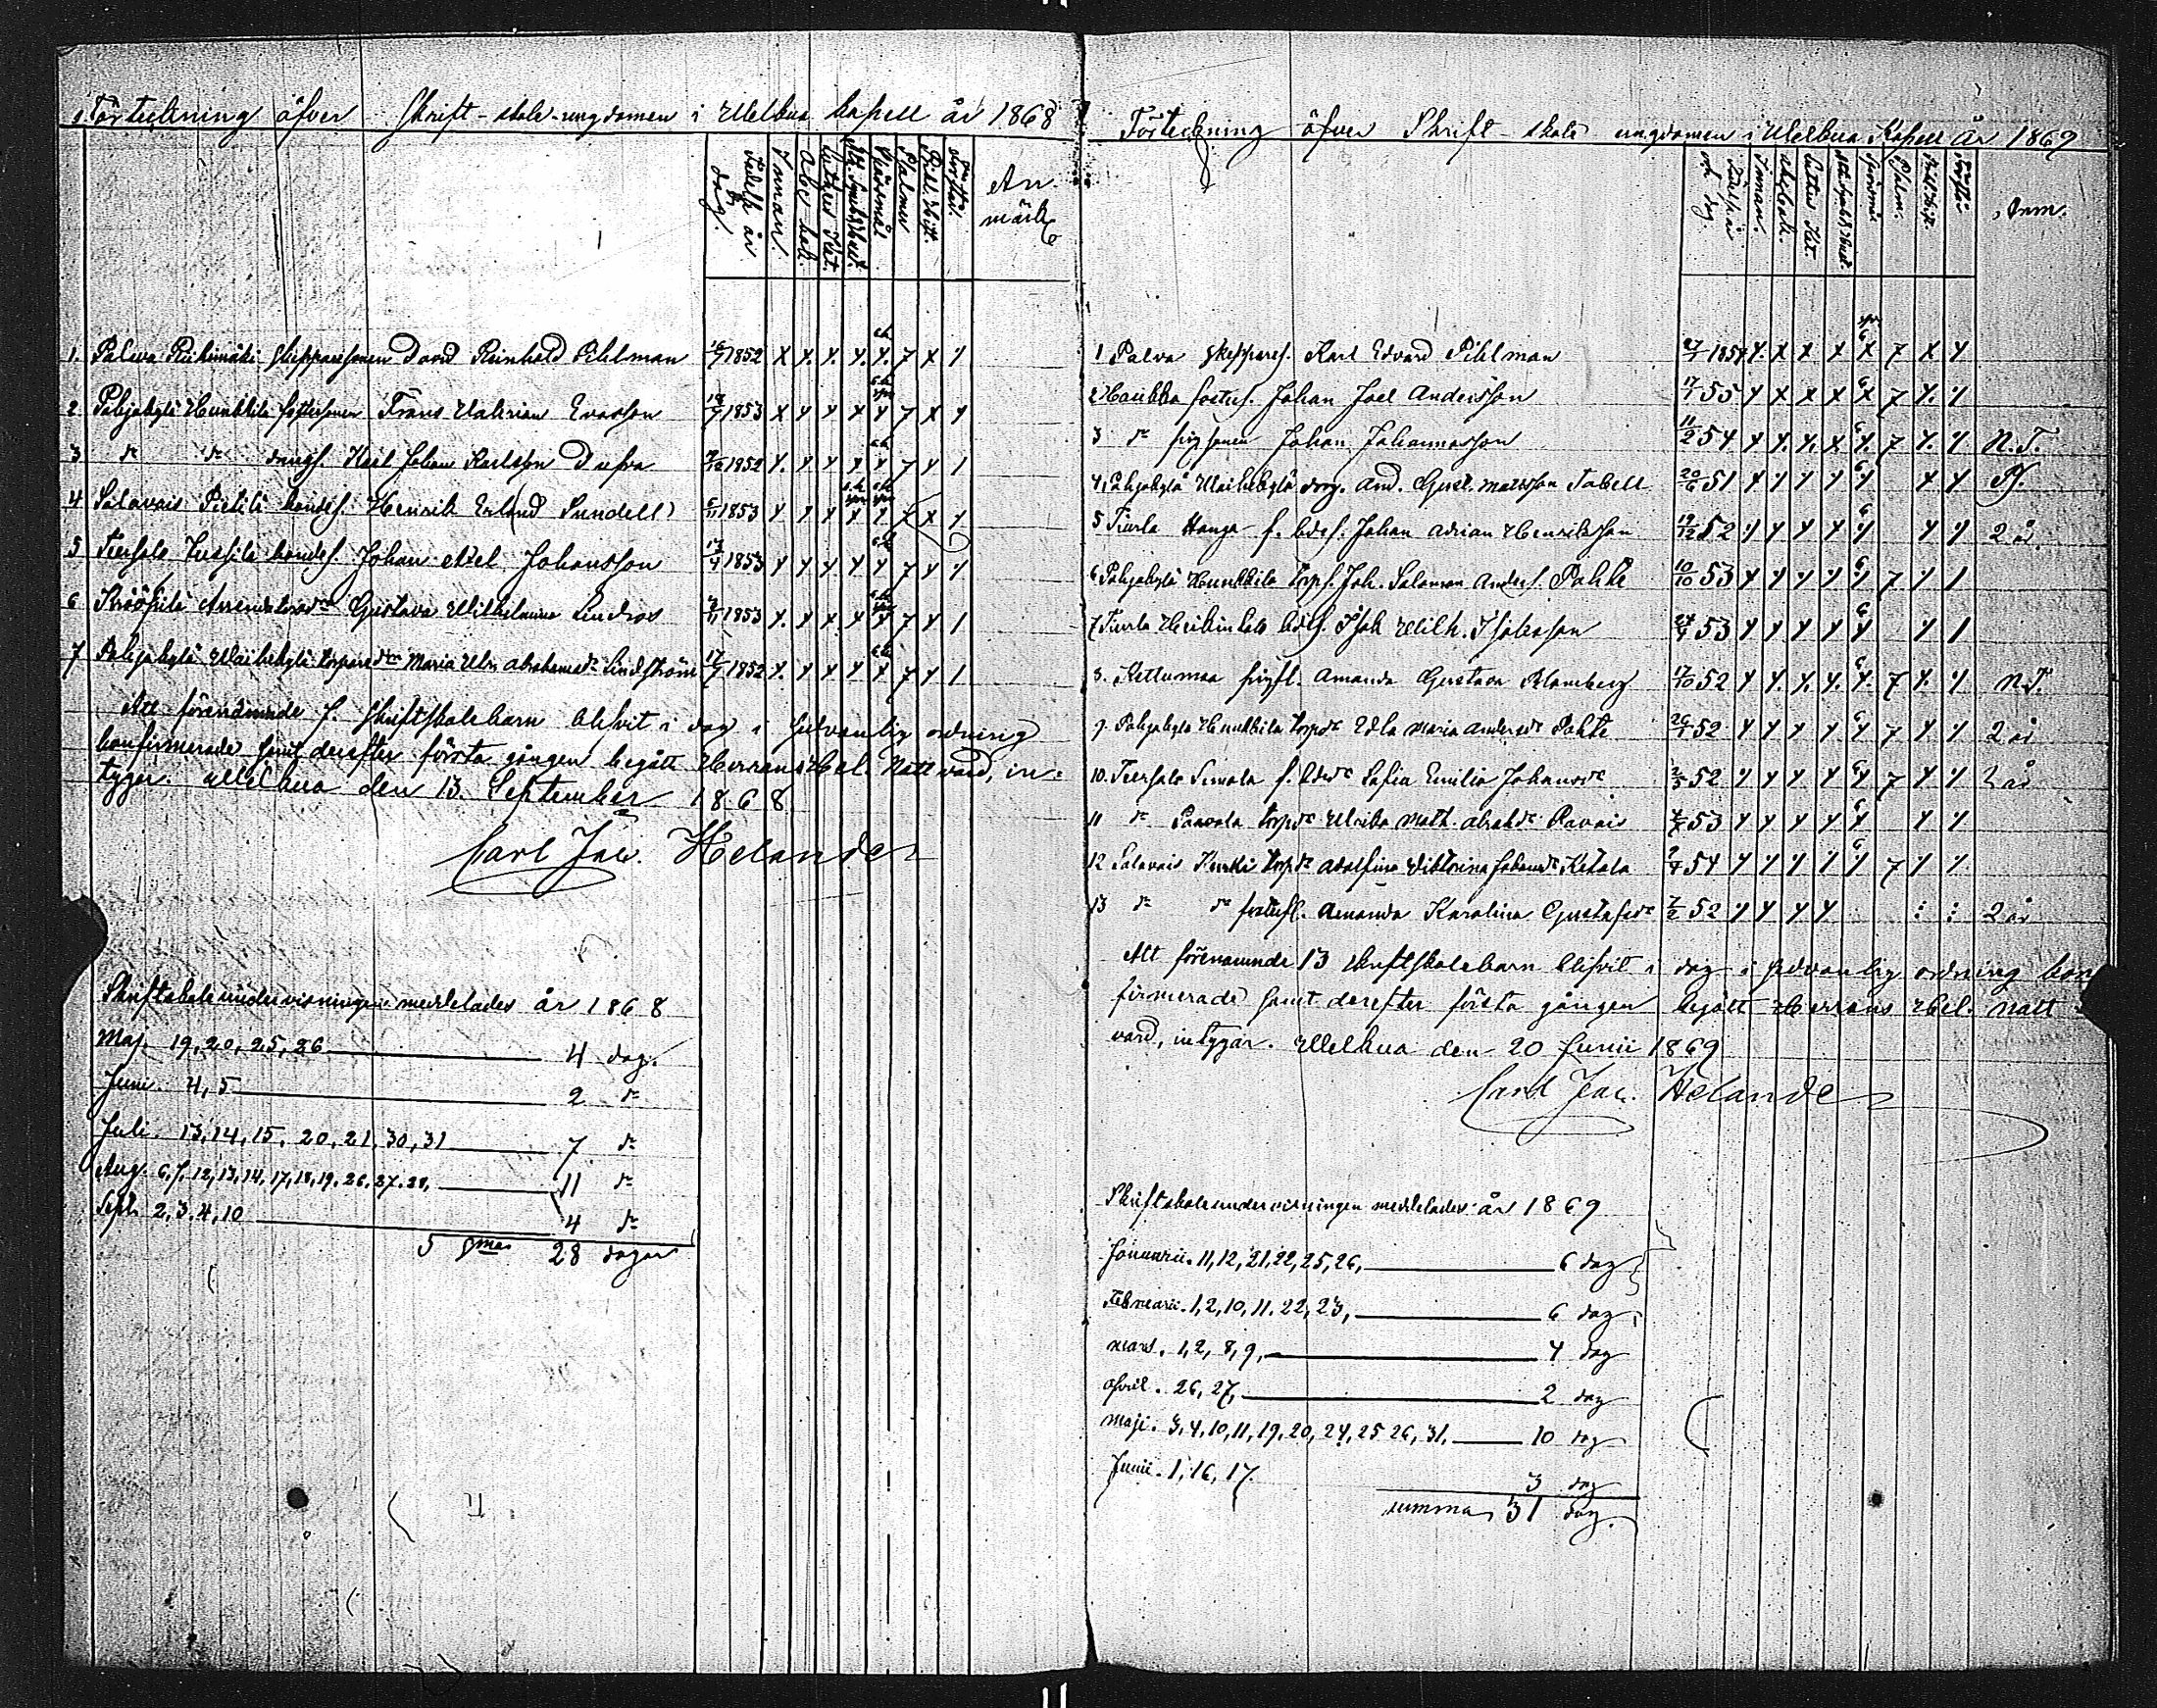 Förteckning öfver Skrift-skole-ungdomen i Welkua kapell år 1868
Födelse år
dag.
Innan.
Abc bok.
Luthers Kat.
Spörsmål
Psalmer
Bibl. Hist.
Förstån.
An-
märk
1. Palwa Riihimäki skepparesonen David Reinhold Pihlman 16/9 1852 x x x x x 7 x x
2 Pohjakylä Hunkkila fostersonen Frans Valerian Evasson 18/9 1853 x x x x x 7 x x
3 dº dº drängs. Karl Johan Karlsson Dufva 1852 x x x x x 7 x x
4 Salavais Pietilä bondes. Henrik Erland Sundell 6/11 1853 x x x x x 7 x x
5 Teersalo Jussila bondes. Johan Axel Johansson 13/4 1853 x x x x x 7 x x
6 Krööpilä Arrendatorsdr Gustava Wilhelmina Lindros 1853 x x x x x 7 x x
7 Pohjakylä Waihekylä torparedr Maria Ulr. Abrahamsdr Lindström 17/7 1852 x x x x x 7 x x
Att förenämnde 7. skriftskolebarn blifvit i dag i sedvanlig ordning
konfirmerade samt derefter första gången begått Herrans Hel. Nattvard, in-
tygar. Welkua den 13. September 1868
Carl Jac. Helander
Skriftskoleundervisningen meddelades år 1868
Maj. 19, 20, 25, 26 4 dag.
Juni. 4, 5 2 dº
Juli. 13, 14, 15, 20, 21, 30, 31 7 dº
Aug. 6, 7, 12, 13, 14, 17, 18, 19, 26, 27, 28, 11 dº
Sept. 2, 3, 4, 10 4 dº
Sma 28 dagar
Förteckning öfver Skrift-skole ungdomen i Welkua Kapell år 1869
Födelse år
och dag.
Innan.
Abc bok.
Luthers Kat.
Spörsmål
Psalm.
Bibl. Hist.
Förstån.
Anm.
1 Palva skeppares. Karl Edvard Pihlman 27/7 1854 x x x x x 7 x x
2 Haukka fosters. Johan Joel Andersson 17/1 55 x x x x x 7 x x
3 dº pigsonen Johan Johannesson 11/2 54 x x x x x 7 x x N.T.
4 Pohjakylä Waihekylä dreng. And. Gust. Matsson Tabell 20/6 51 x x x x x x x Ps.
5 Tiurla Hanga f. bdes. Johan Adrian Henriksson 19/12 52 x x x x x x x 2 år.
6 Pohjakylä Hunkkila torps. Joh. Salomon Anders. Pahte 10/10 53 x x x x x 7 x x
7 Tiurla Heikinkalo bdes. Isak Wilh. Isaksson 24/4 53 x x x x x x x
8. Kettumaa pigfl. Amanda Gustava Blomberg 17/10 52 x x x x x 7 x x N.T.
9. Pohjakylä Hunkkila torpdr Edla Maria Andersdr Pahte 26/1 52 x x x x x 7 x x 2 år
10. Teersalo Simola f. bdedr Sofia Emilia Johansdr 2/5 52 x x x x x 7 x x 2 år
11 dº Paavola torpdr Ulrika Math. Abrahdr Ravais 53 x x x x x x x
12 Salavais Kurki torpdr Adolfina Viktorina Johansdr Ketala 54 x x x x x 7 x x
13 dº dº fosterfl. Amanda Karolina Gustafsdr 7/2 52 x x x x : : 2 år
Att förenämnde 13 skriftskolebarn blifvit i dag i sedvanlig ordning kon
firmerade samt derefter första gången begått Herrans Hel. Natt
vard, intygar. Welkua den 20 Junii 1869
Carl Jac. Helander
Skriftskoleundervisningen meddelades år 1869
Januarii. 11, 12, 21, 22, 25, 26, 6 dag
Februarii. 1, 2, 10, 11, 22, 23, 6 dag
Mars. 1, 2, 8, 9, 4 dag
April. 26, 27, 2 dag
Maji. 3, 4, 10, 11, 19, 20, 24, 25 26, 31, 10 dag
Junii. 1, 16, 17. 3 dag
summa 31 dag.